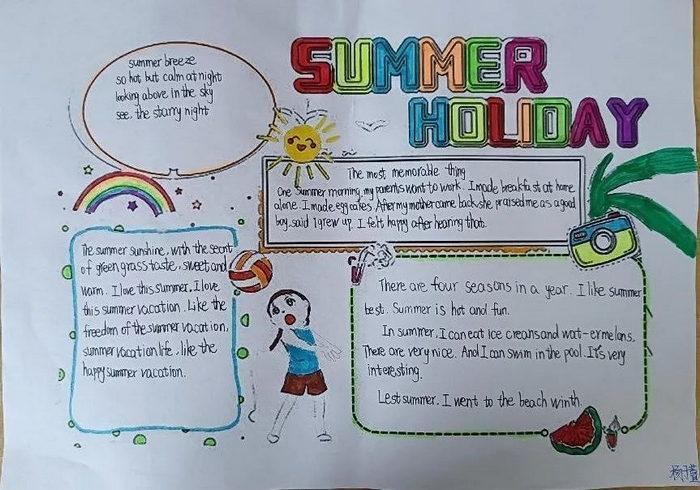 SUMMER
HOLIDAY
summer breeze
so hot but calm at night
looking above in the sky
see the starry night
The most memorable thing
One summer morning, my parents want to work. I made breakfast at home
alone. I made egg cakes. After my mother came back, she praised me as a good
boy, said I grew up. I felt happy after hearing that.
The summer sunshine, with the secnt
of green grass taste, sweet and
warm. I love this summer, I love
this summer vacation. Like the
freedom of the summer vacation,
summer vacation life, like the
happy summer vacation.
There are four seasons in a year. I like summer
best. Summer is hot and fun.
In summer, I can eat ice creans and wat-ermelons.
There are very nice. And I can swim in the pool. It's very
interesting.
Lest summer. I went to the beach winth